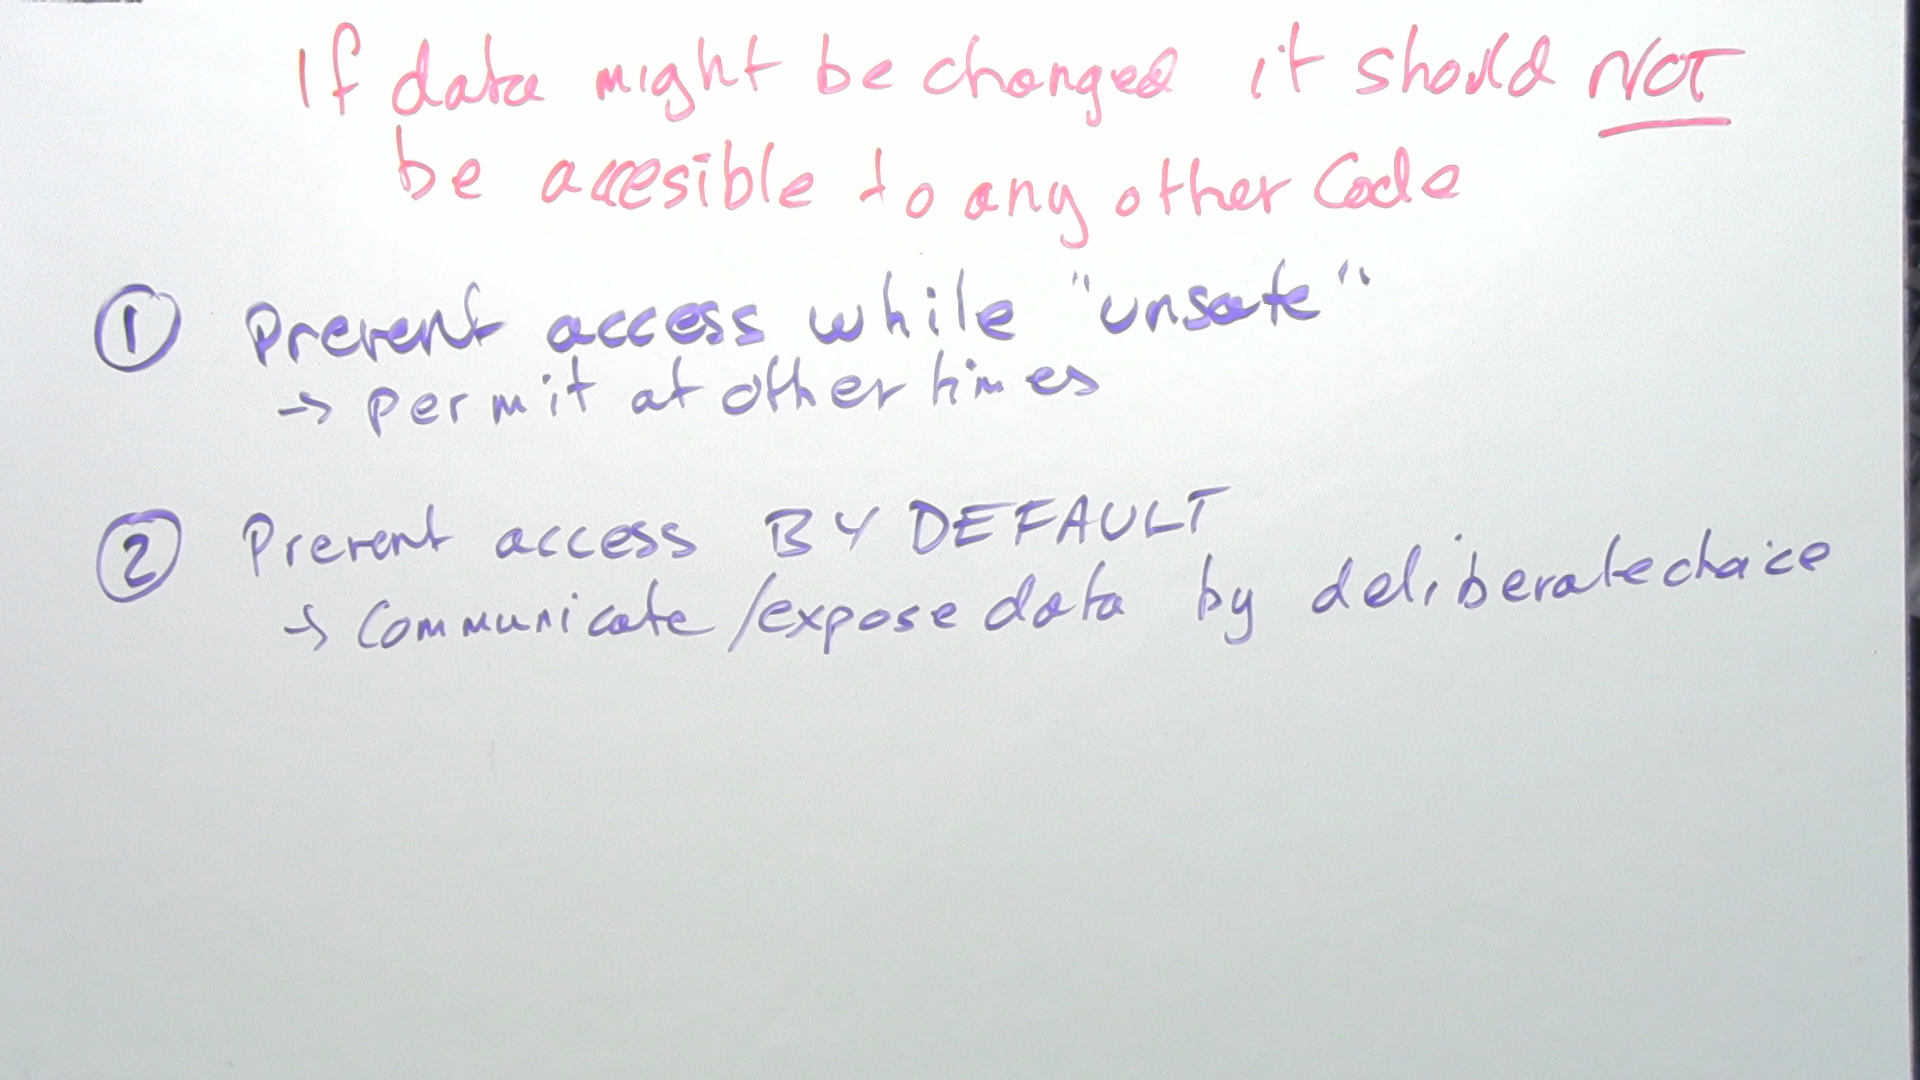 If data might be changed it should NOT
be accesible to any other Code
① Prevent access while "unsafe"
→ permit at other times
② Prevent access BY DEFAULT
→ Communicate/expose data by deliberate choice